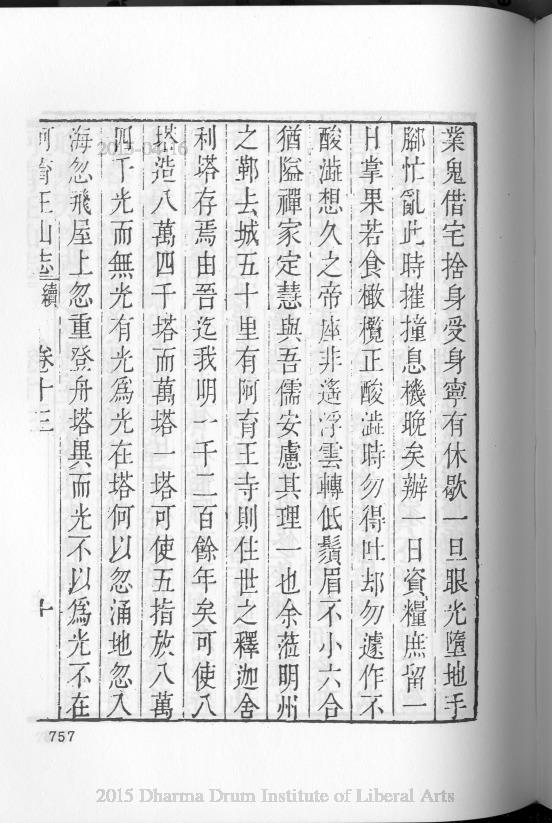 業鬼借宅捨身受身寧有休歇一旦眼光墮地手
腳忙亂此時摧撞息機晚矣辦一日資糧庶留一
日掌果若食橄欖正酸澁時勿得吐却勿遽作不
酸澁想久之帝座非遙浮雲轉低鬚眉不小六合
猶隘禪家定慧與吾儒安慮其理一也余蒞明州
之鄞去城五十里有阿育王寺則住世之釋迦舍
利塔存焉由吾迄我明一千二百餘年矣可使八
塔造八萬四千塔而萬塔一塔可使五指放八萬
四千光而無光有光爲光在塔何以忽涌地忽入
海忽飛屋上忽重登舟塔異而光不以爲光不在
阿育王山志 續 卷十三 十
757
2015 Dharma Drum Institute of Liberal Arts